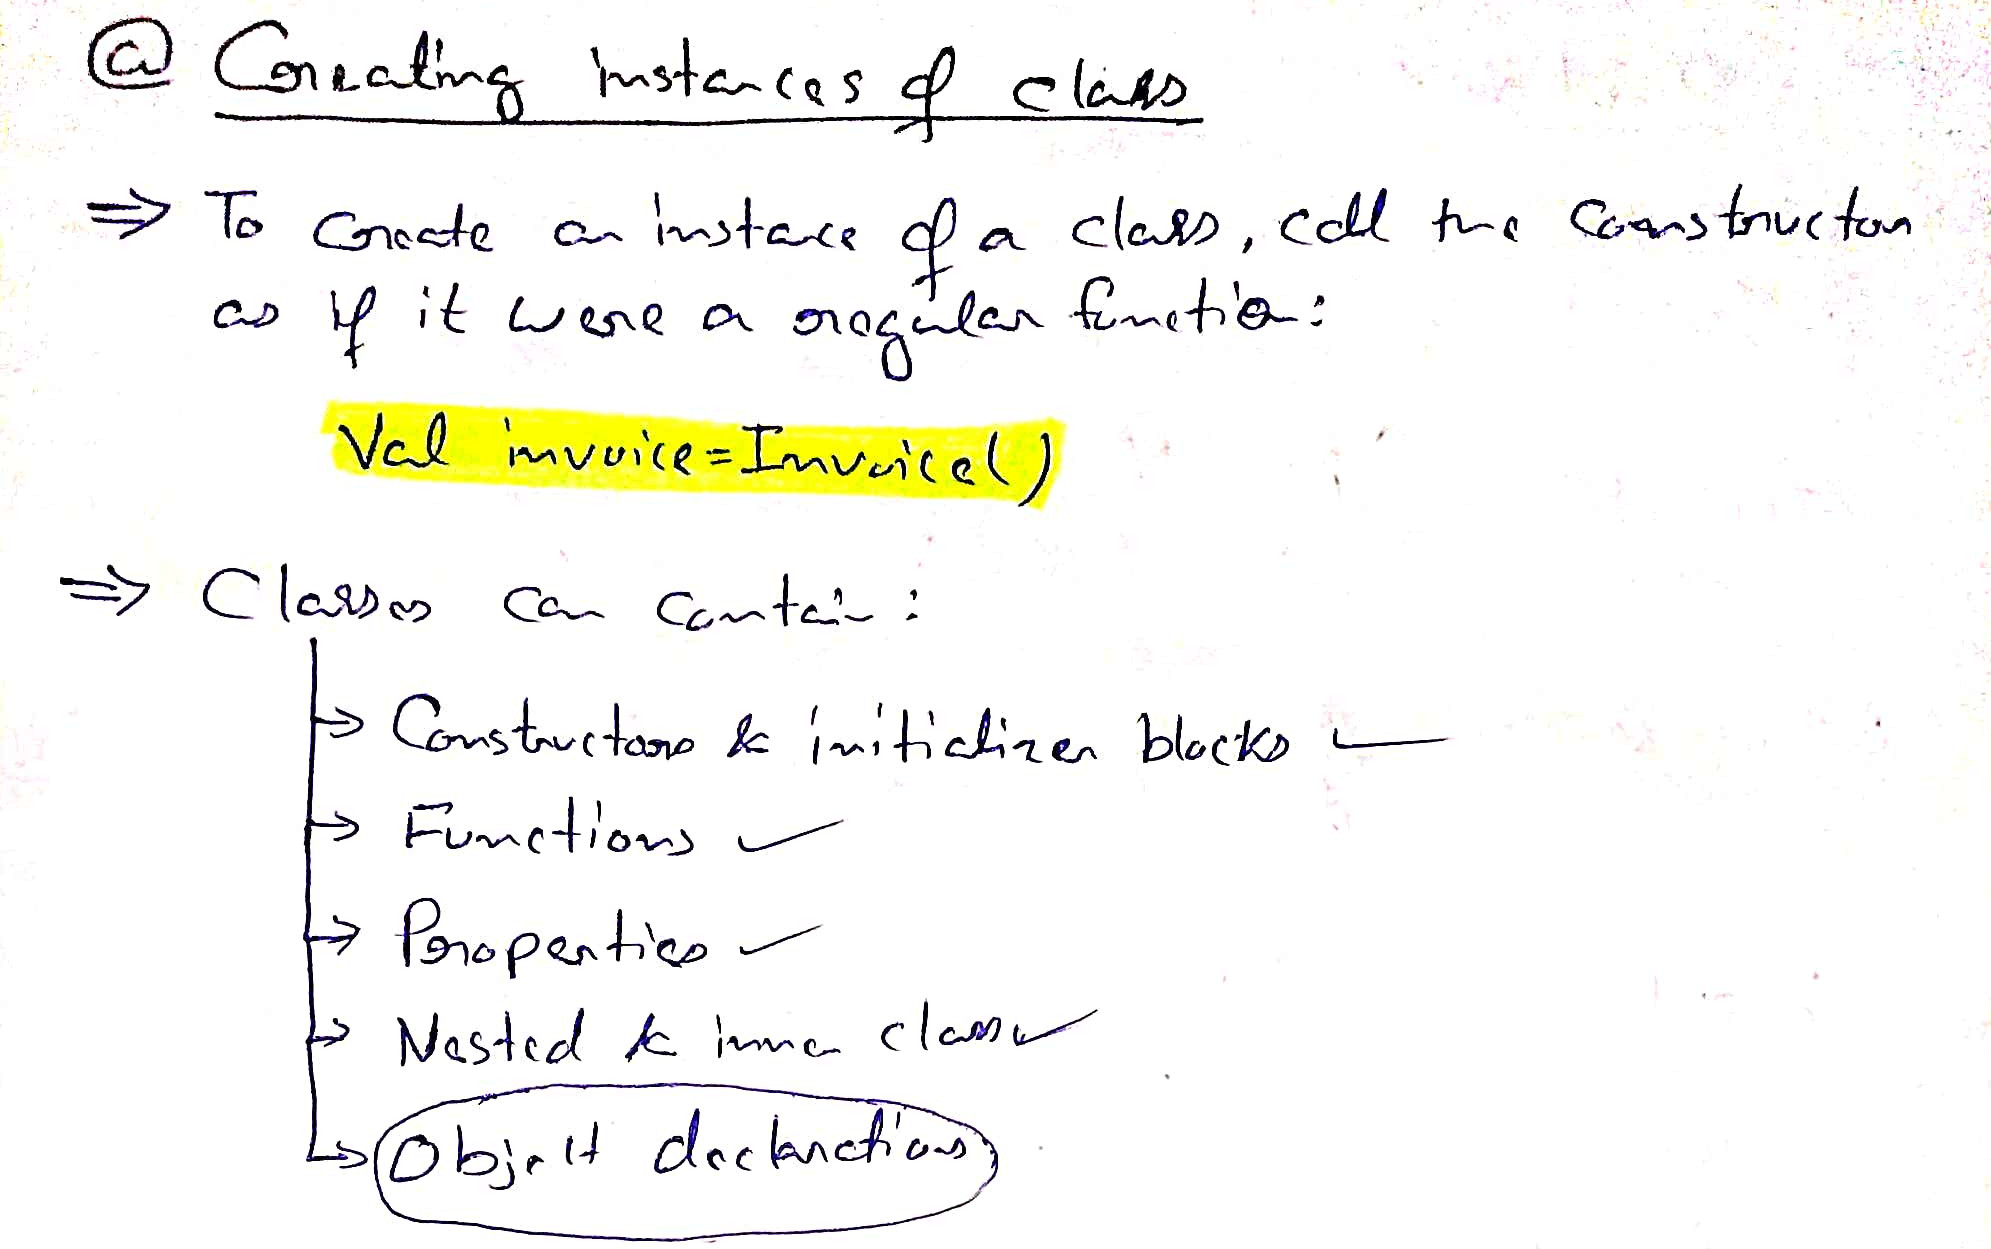 @ Creating instances of class
⇒ To create an instance of a class, call the constructor
as if it were a regular function:
Val invoice = Invoice()
⇒ Classes can contain :
→ Constructors & initializer blocks
→ Functions
→ Properties
→ Nested & inner class
→ Object declarations